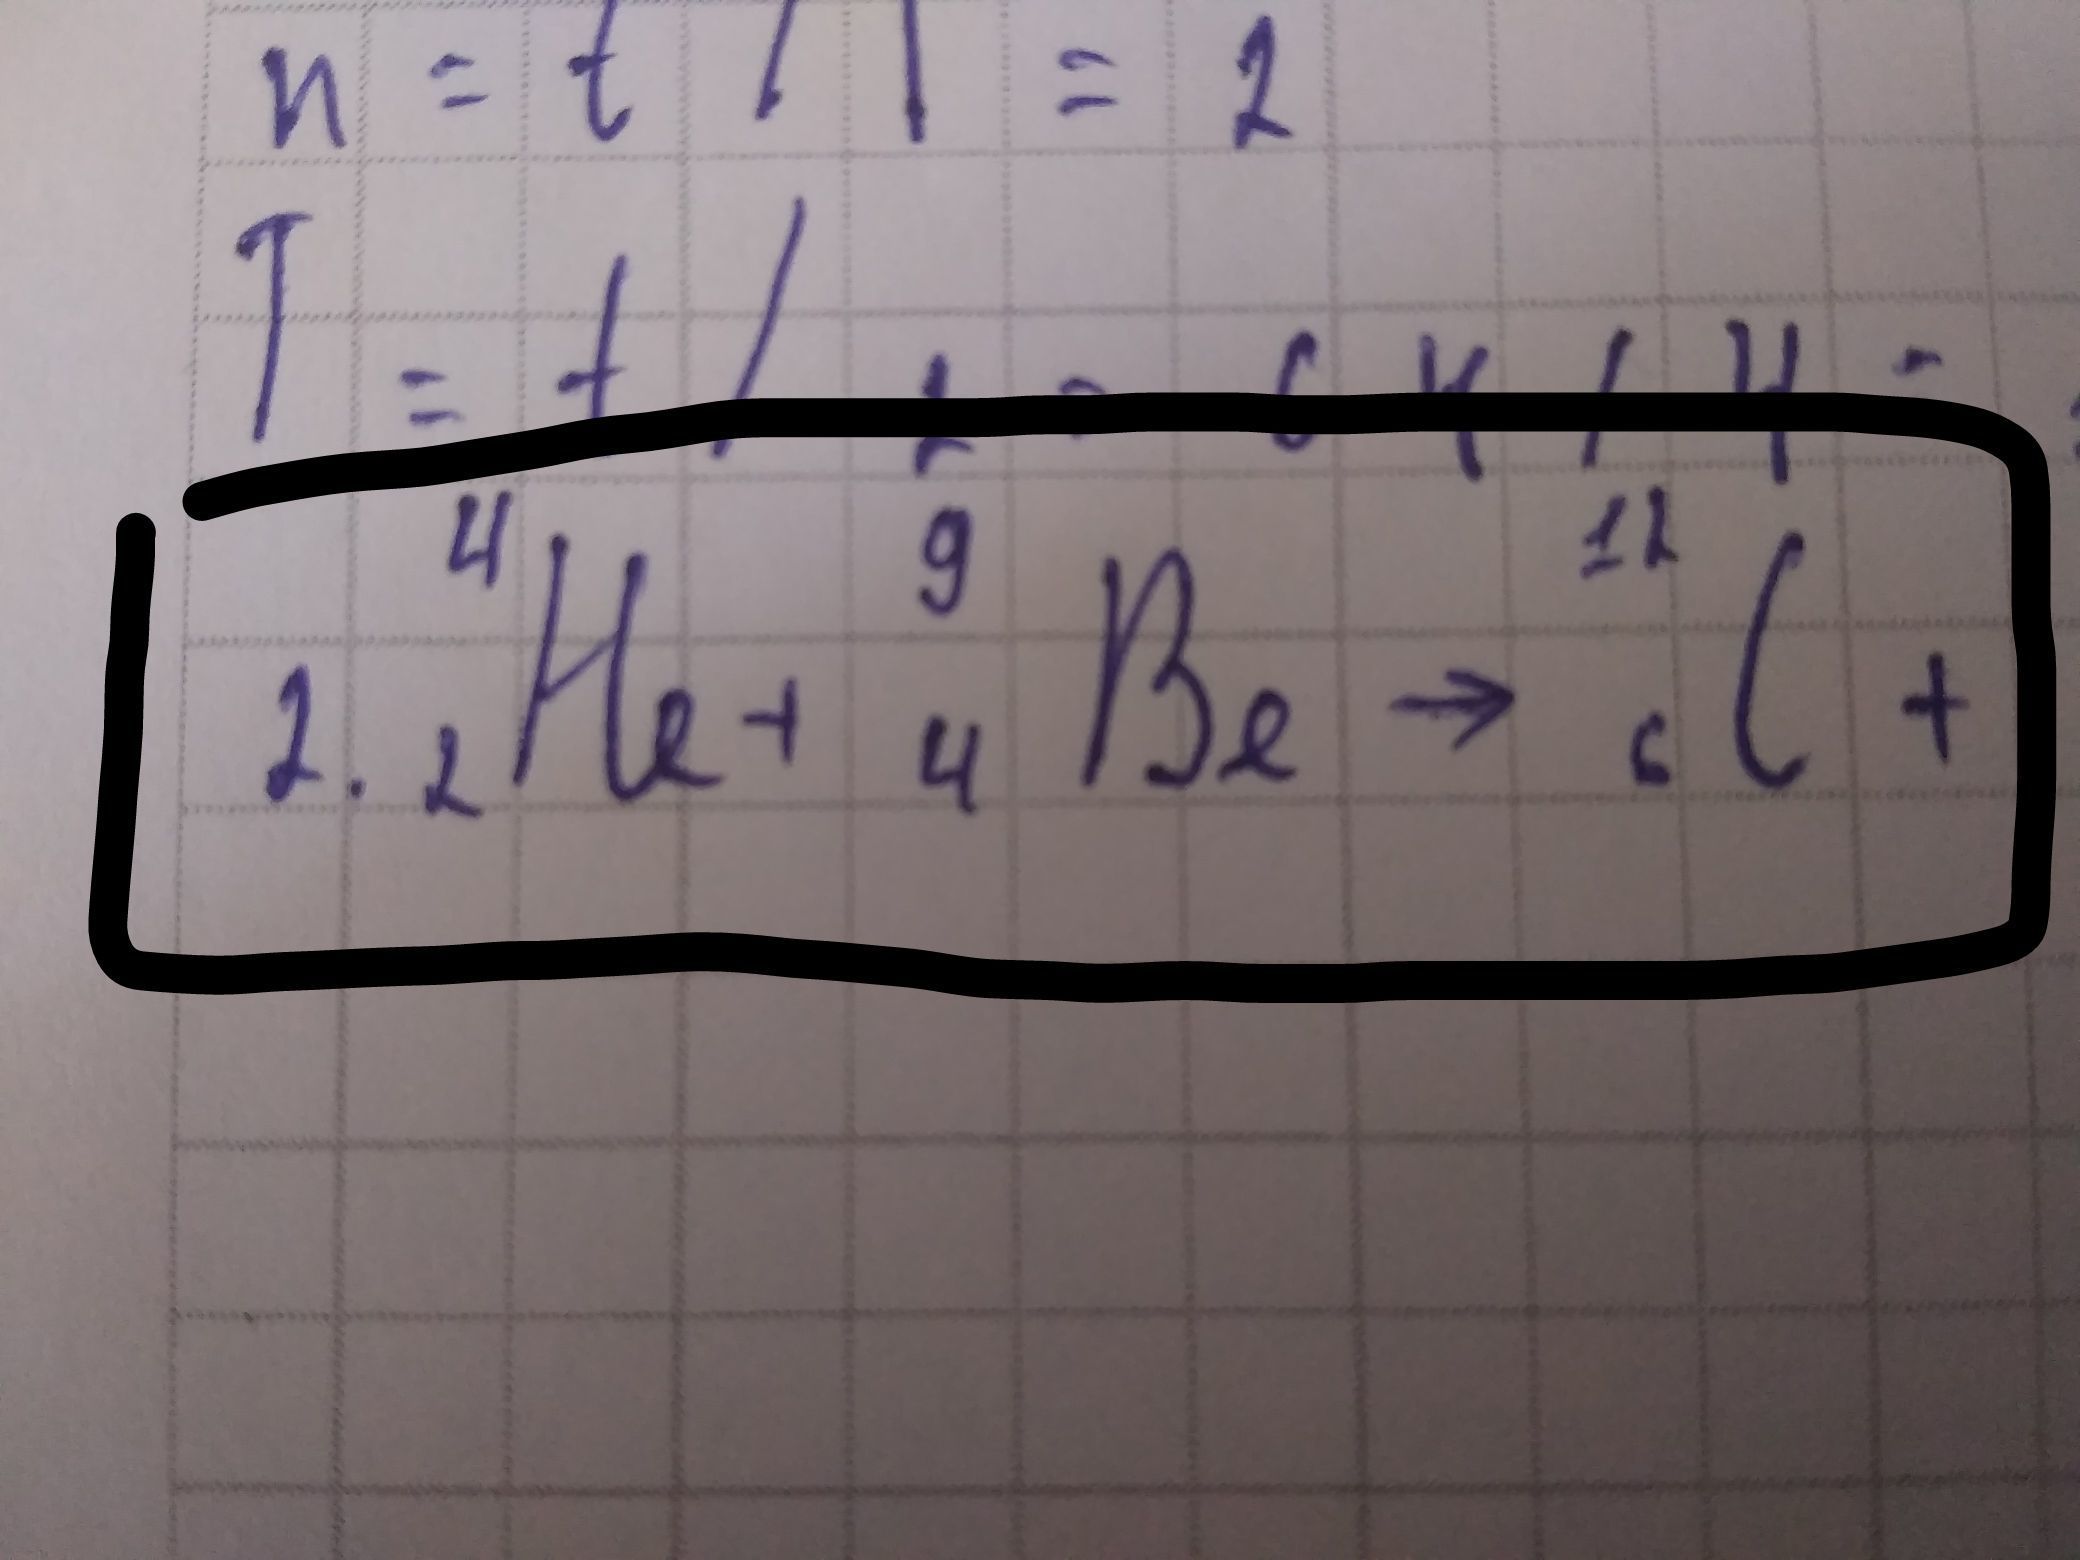 n = t / T = 2
T = t / 2 = 64 / 4 =
2. ⁴₂He + ⁹₄Be → ¹²₆C +